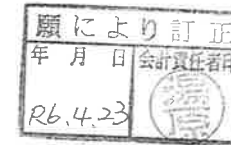 願により訂正
年 月 日
会計責任者印
R6.4.23